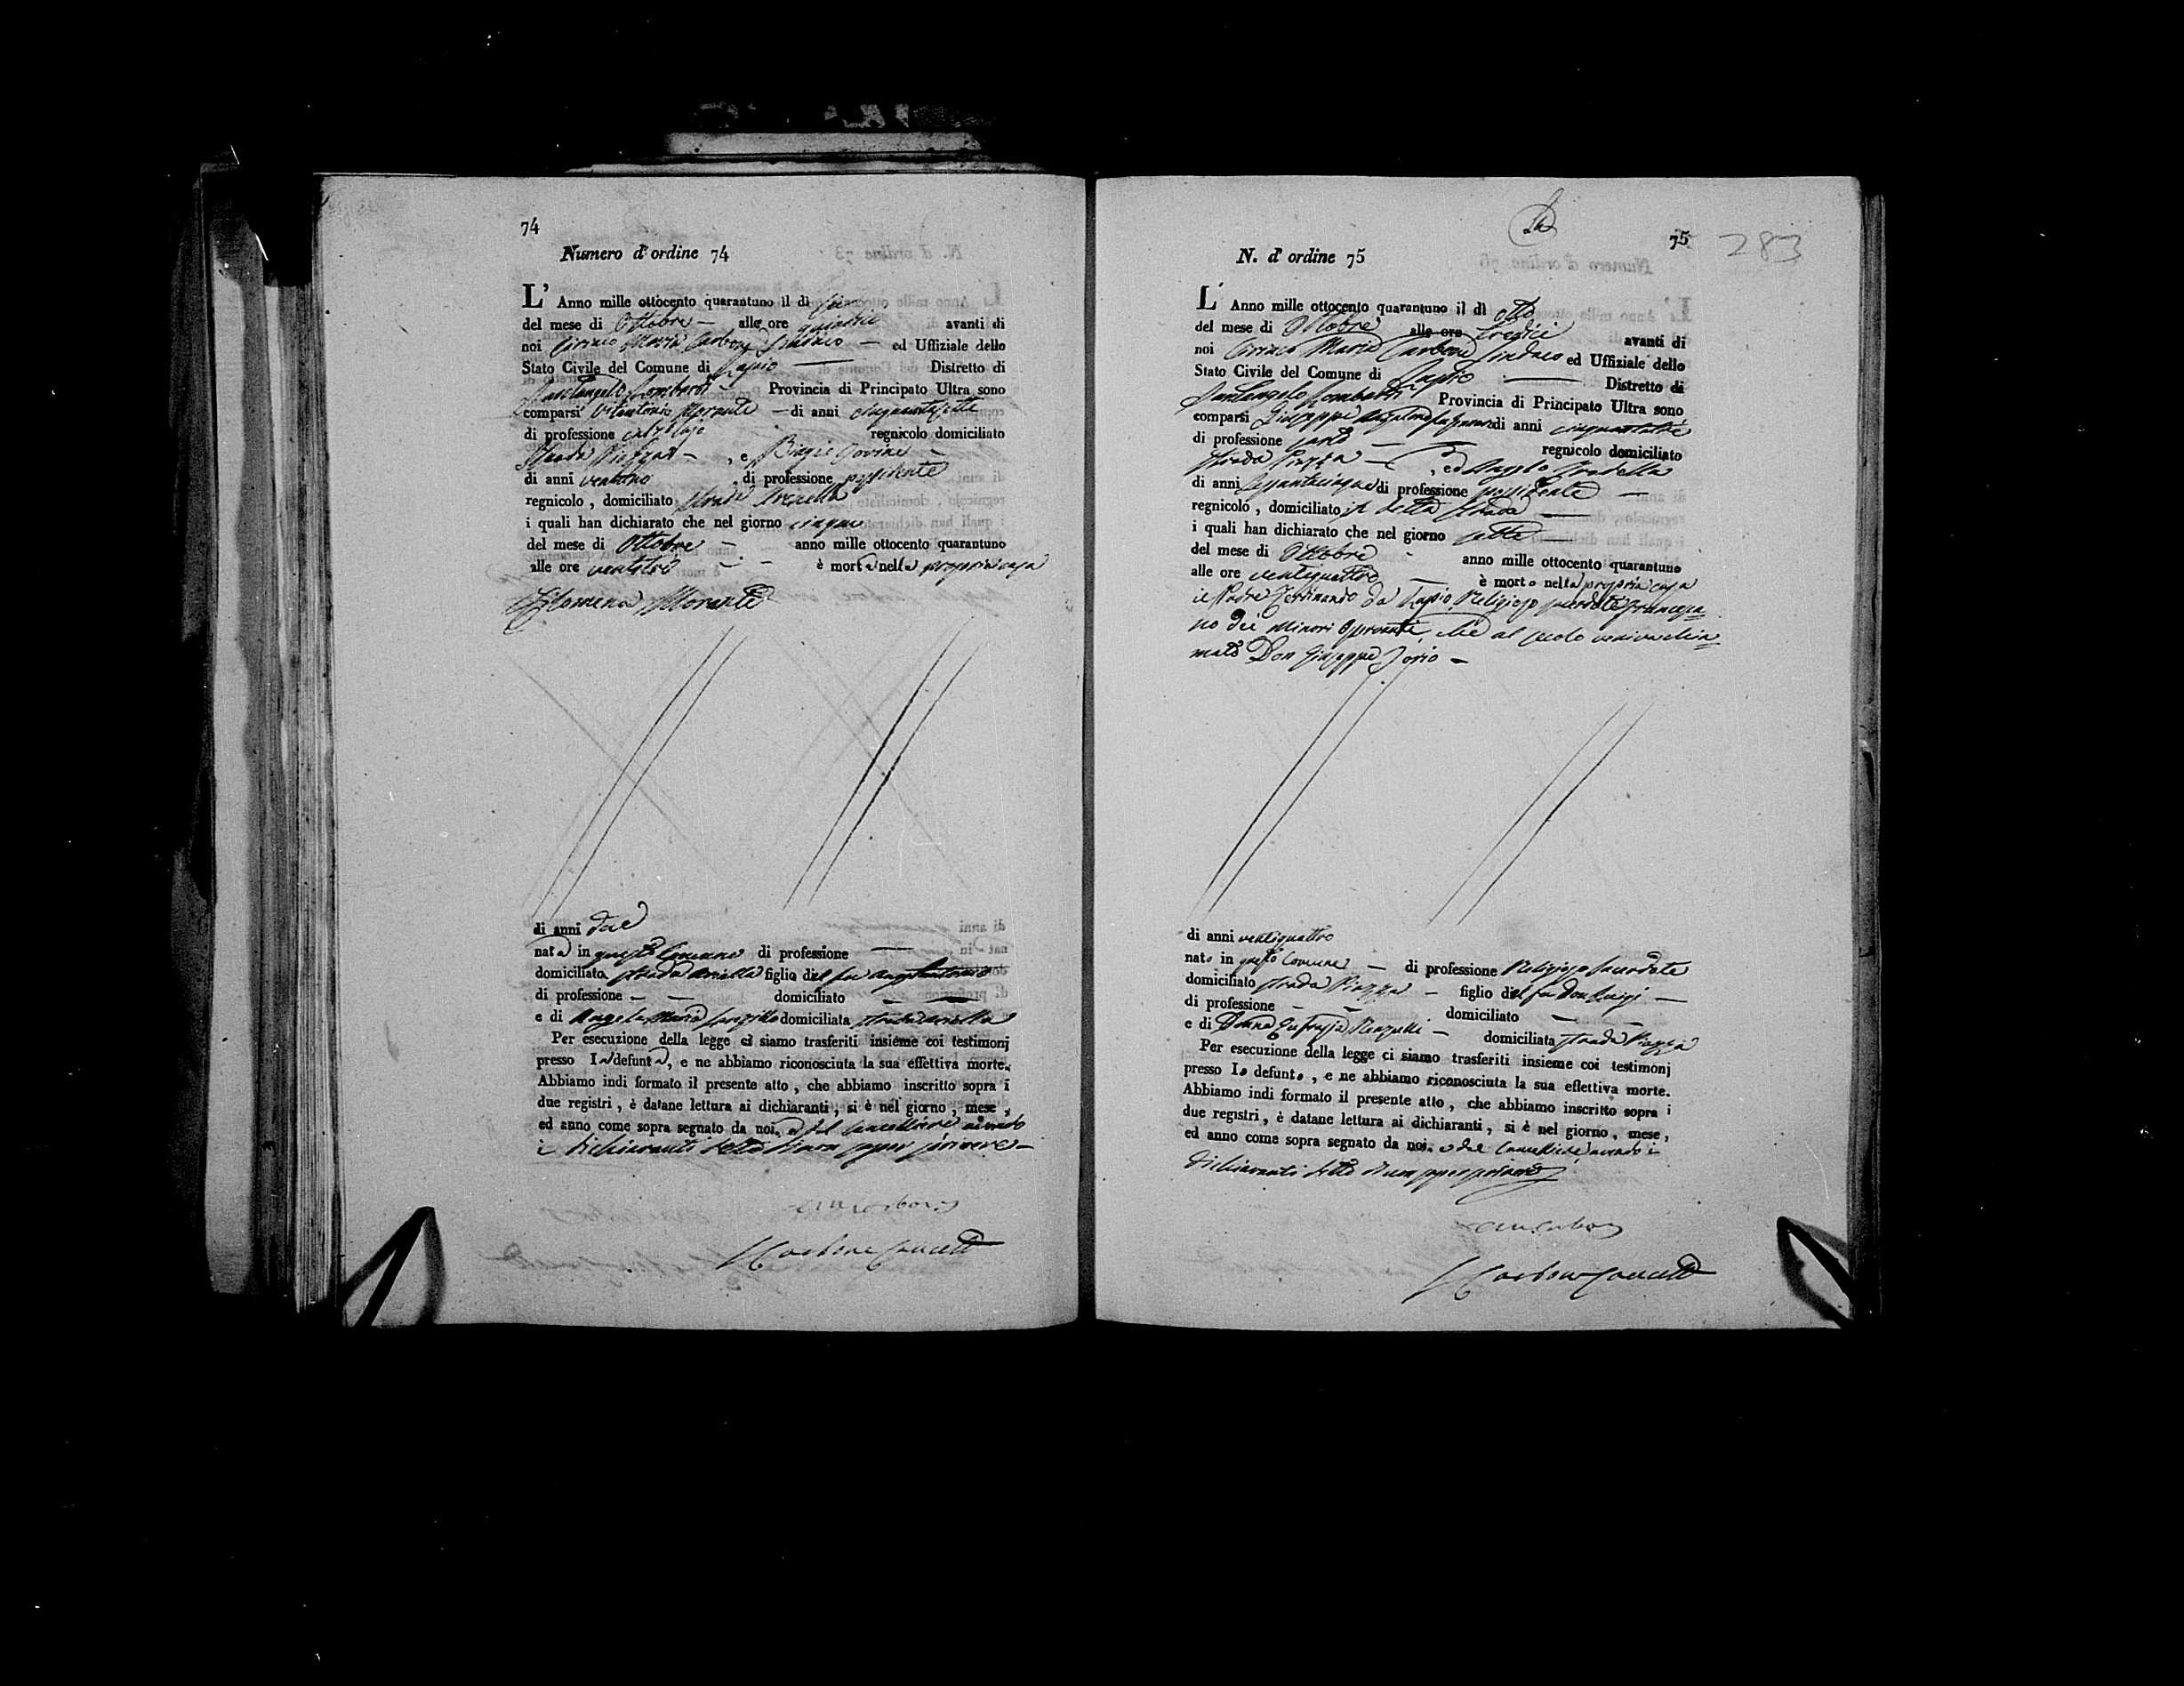 74
Numero d'ordine 74
L' Anno mille ottocento quarantuno il dì sei
del mese di Ottobre — alle ore quindici avanti di
noi Ciriaco Maria Carbone Sindaco — ed Uffiziale dello
Stato Civile del Comune di Lapio — Distretto di
Santangelo Lombardi Provincia di Principato Ultra sono
comparsi Vitantonio Morante — di anni cinquantasette
di professione calzolajo regnicolo domiciliato
strada Piazza — , e Biagio Iovine —
di anni ventuno , di professione possidente
regnicolo , domiciliato strada Arenella
i quali han dichiarato che nel giorno cinque
del mese di Ottobre — anno mille ottocento quarantuno
alle ore ventitre — - è morta nella propria casa
Filomena Morante
di anni due
nata in questo Comune di professione —
domiciliata strada figlia del fu Angelantonio
di professione — — domiciliato — —
e di Angela Maria domiciliata strada
Per esecuzione della legge ci siamo trasferiti insieme coi testimonj
presso la defunta, e ne abbiamo riconosciuta la sua effettiva morte.
Abbiamo indi formato il presente atto , che abbiamo inscritto sopra i
due registri , è datane lettura ai dichiaranti , si è nel giorno , mese ,
ed anno come sopra segnato da noi, e dal Cancelliere avendo
i dichiaranti detto di non saper scrivere —
C M Carbone
Carbone Cancell
75
283
N. d' ordine 75
L' Anno mille ottocento quarantuno il dì otto
del mese di Ottobre alle ore tredici avanti di
noi Ciriaco Maria Carbone Sindaco ed Uffiziale dello
Stato Civile del Comune di Lapio — Distretto di
Santangelo Lombardi Provincia di Principato Ultra sono
comparsi Giuseppe di anni cinquantatre
di professione sarto — regnicolo domiciliato
strada Piazza — , ed Angelo
di anni sessantacinque di professione possidente —
regnicolo , domiciliato in detta strada —
i quali han dichiarato che nel giorno sette
del mese di Ottobre - anno mille ottocento quarantuno
alle ore ventiquattro — è morto nella propria casa
il Padre Ferdinando da Lapio Religioso sacerdote Francesca=
no dei Minori Osservanti, che al secolo veniva chia=
mato Don Giuseppe Iorio —
di anni ventiquattro
nato in questo Comune — di professione Religioso Sacerdote
domiciliato strada Piazza — figlio del fu Don Luigi —
di professione — — domiciliato — —
e di Donna Eufrasia — domiciliata strada Piazza
Per esecuzione della legge ci siamo trasferiti insieme coi testimonj
presso lo defunto , e ne abbiamo riconosciuta la sua effettiva morte.
Abbiamo indi formato il presente atto , che abbiamo inscritto sopra i
due registri , è datane lettura ai dichiaranti , si è nel giorno , mese ,
ed anno come sopra segnato da noi, e dal Cancelliere, avendo i
dichiaranti detto di non saper scrivere
C M Carbone
Carbone Cancell